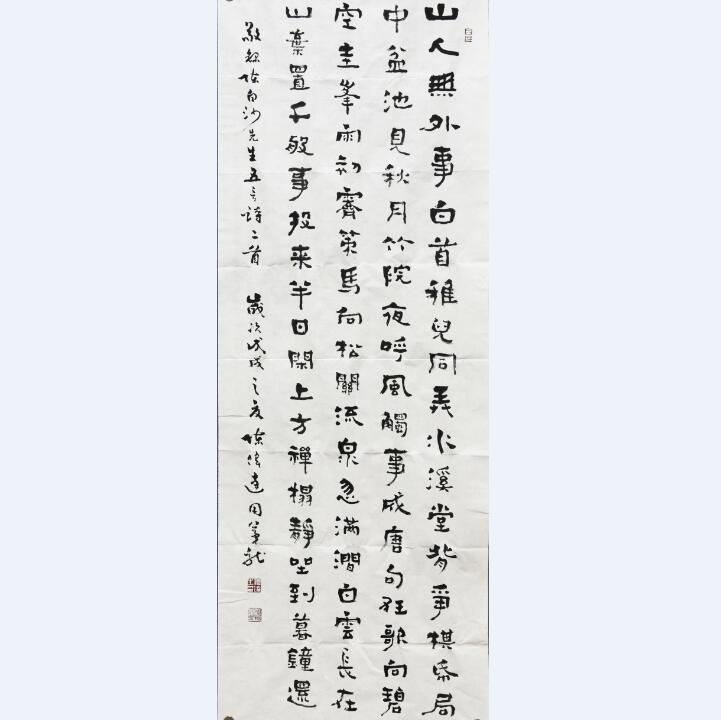 山人無外事白首稚兒同弄水溪堂背爭棋帋局
中盆池見秋月竹院夜呼風觸事成唐句狂歌向碧
空圭峯雨初霽策馬向松關流泉忽滿澗白雲長在
山棄置千般事投来半日閑上方禪榻靜坐到暮鐘還
敬録陳白沙先生五言詩二首 歲次戊戌之夏陳偉達用茅龍